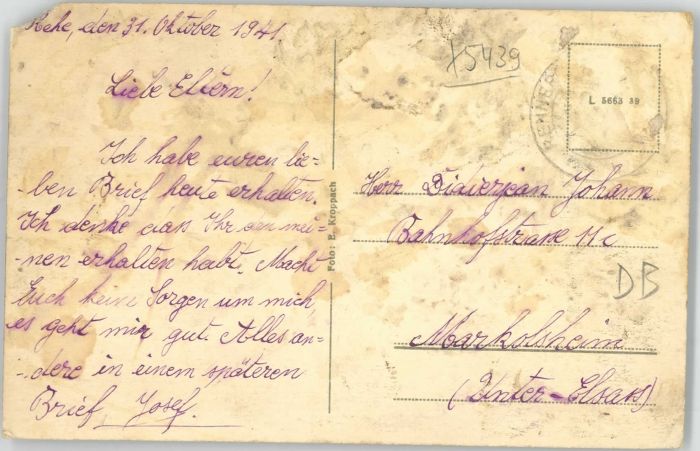 Rehe, den 31. Oktober 1941.
Liebe Eltern!
Ich habe euren lie-
-ben Brief heute erhalten.
Ich denke das Ihr den mei-
-nen erhalten habt. Macht
Euch kein Sorgen um mich
es geht mir gut. Alles an-
-dere in einem späteren
Brief, Josef.
Foto: E. Kroppach
75439
L 5663 39
Herr Didierjean Johann
Bahnhofstrasse 11c
DB
Markolsheim
(Unter-Elsass)